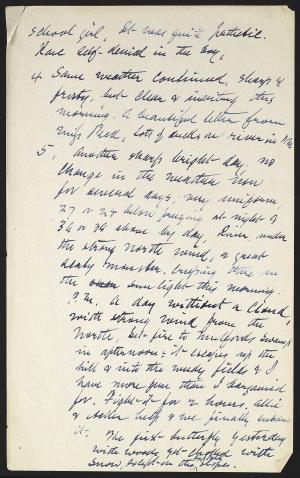 school girl. It was quite pathetic.
Rare self-denial in the boy.
4 Same weather continued, sharp &
frosty, but clear & inviting this
morning. A beautiful letter from
Miss Peck. Lots of ducks on river in P.M.
5. Another sharp bright day, no
change in the weather now
for several days; very uniform,
27 or 28 below freezing at night &
36 or 38 above by day. River under
the strong North wind, a great
scaly monster, creeping there in
the sun-light this morning.
P.M. A day without a cloud,
with strong wind from the
North. Set fire to McGords swamp
in afternoon; it creeps up the
hill & into the weedy fields & I
have more fire than I bargained
for. Fight it for 2 hours. Allie
& others help & we finally subdue
it.
The first butterfly yesterday
with woods yet choked with
snow, except on the slopes.